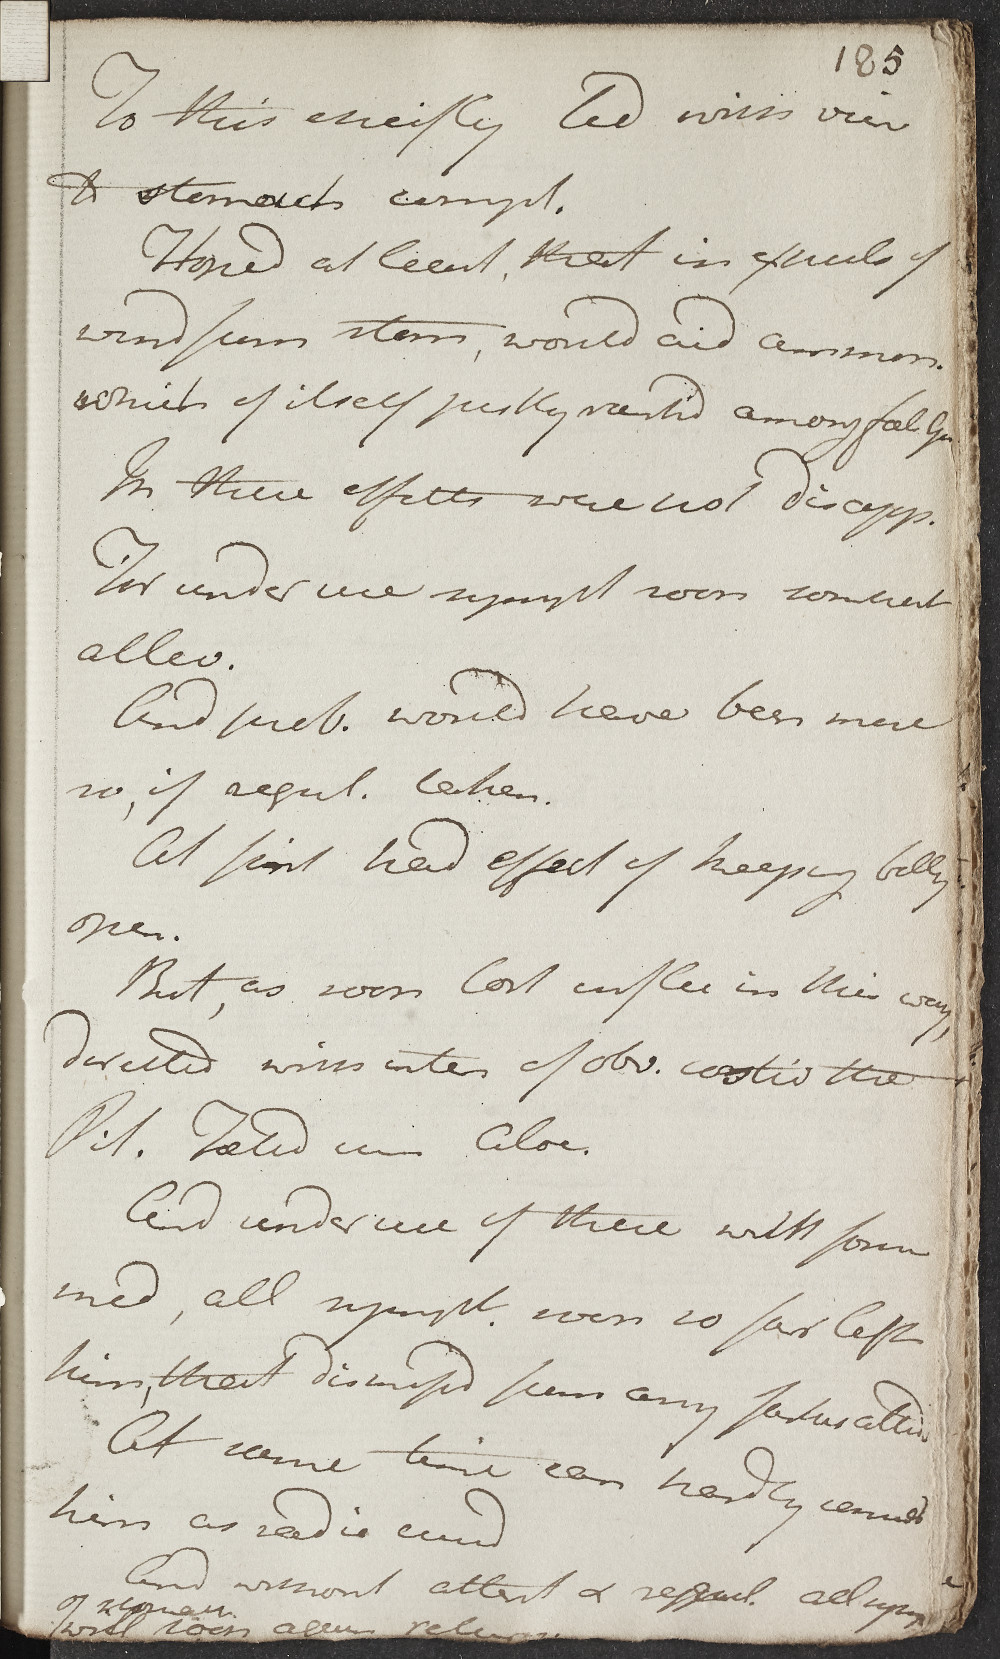 185
To this chiefly led with view
to stomach compl.
Hoped at least, that in expuls of
wind from stom, would aid common.
which of itself justly rank'd among foet. Gu
In these effects were not disapp.
For under use sympt soon somewhat
allev.
And prob. would have been more
so, if regul. taken.
At first had effect of keeping belly
open.
But, as soon lost influ in this way,
directed with inten of obv. costiv the
Pil. Foetid cum Aloe.
And under use of these with form
med, all sympt. soon so far left
him, that dismiss'd from any farther atten
At same time can hardly consid
him as radic cured
And without attent & regul. adv upon
of regimen.
will soon again return